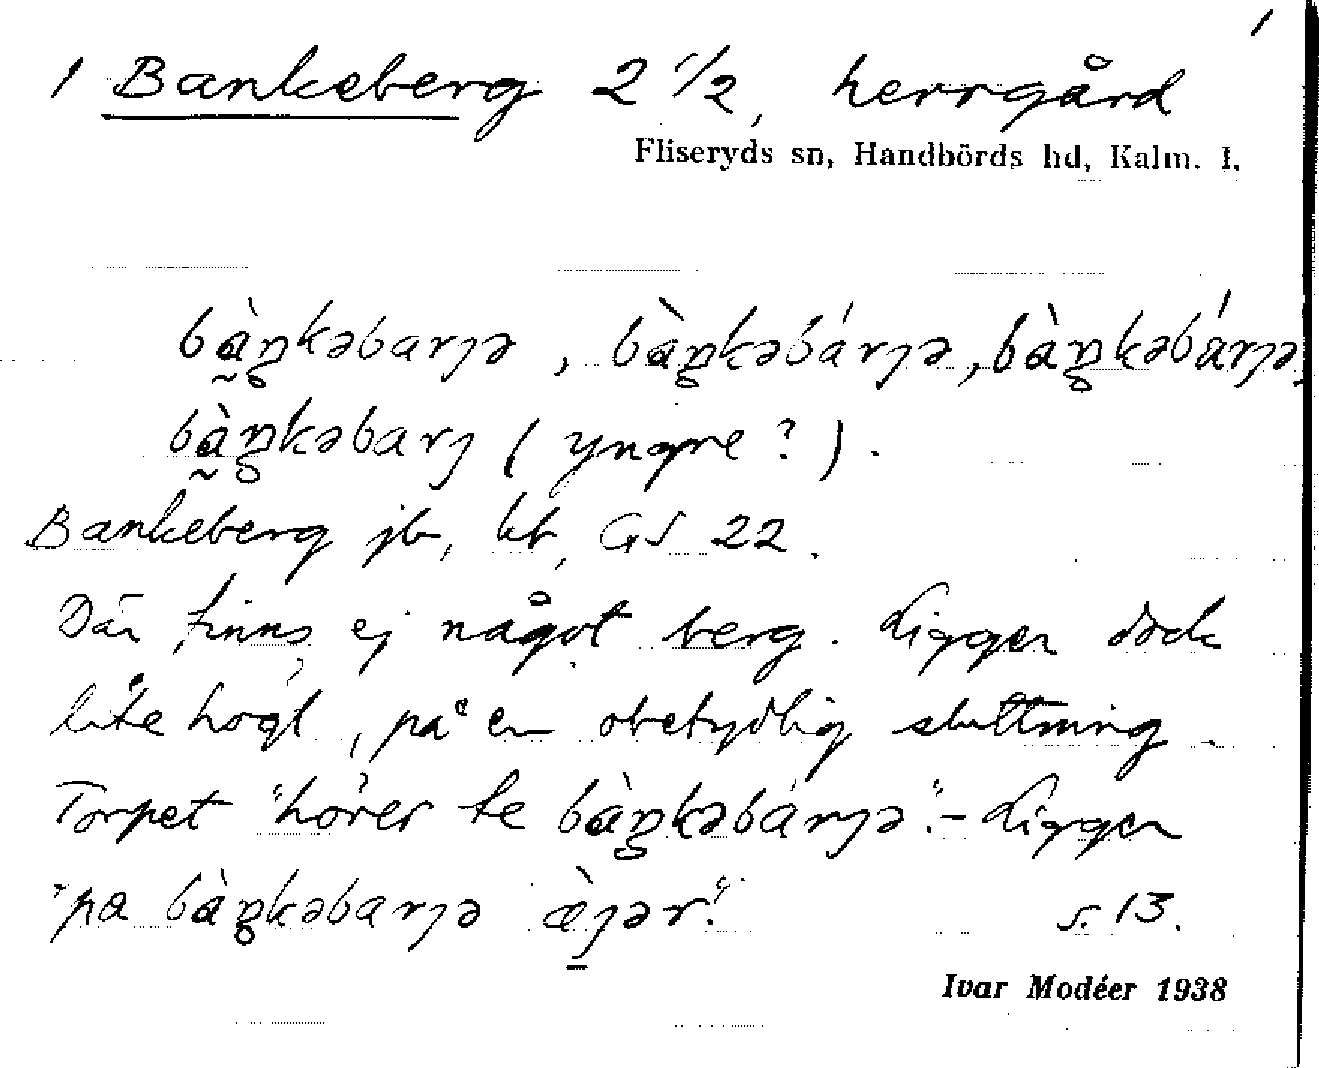 1
1 Bankeberg 2 1/2, herrgård
Fliseryds sn, Handbörds hd, Kalm. l.
bàŋkəbarjə, bàŋkəbárjə, bàŋkəbárjə,
bàŋkəbarj (yngre?).
Bankeberg jb, kb, GS 22.
Där finns ej något berg. Ligger dock
lite högt, på en obetydlig sluttning.
Torpet "hörer te bàŋkəbárjə".- Ligger
"pa bàŋkəbarjə æ̀jər". s. 13.
Ivar Modéer 1938